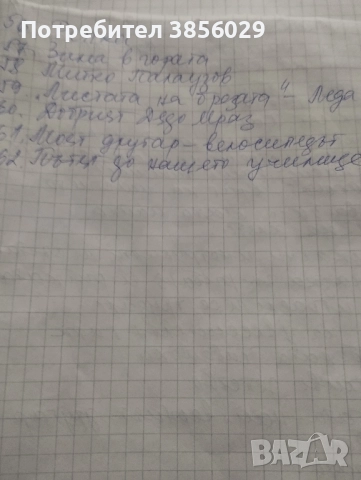 Потребител 3856029
57. Зима в гората
58 Митко Палаузов
59 „Листата на брезата" – Леда
60. Добрият Дядо Мраз
61. Моят другар – велосипедът
62. Пътят до нашето училище
BAZAR